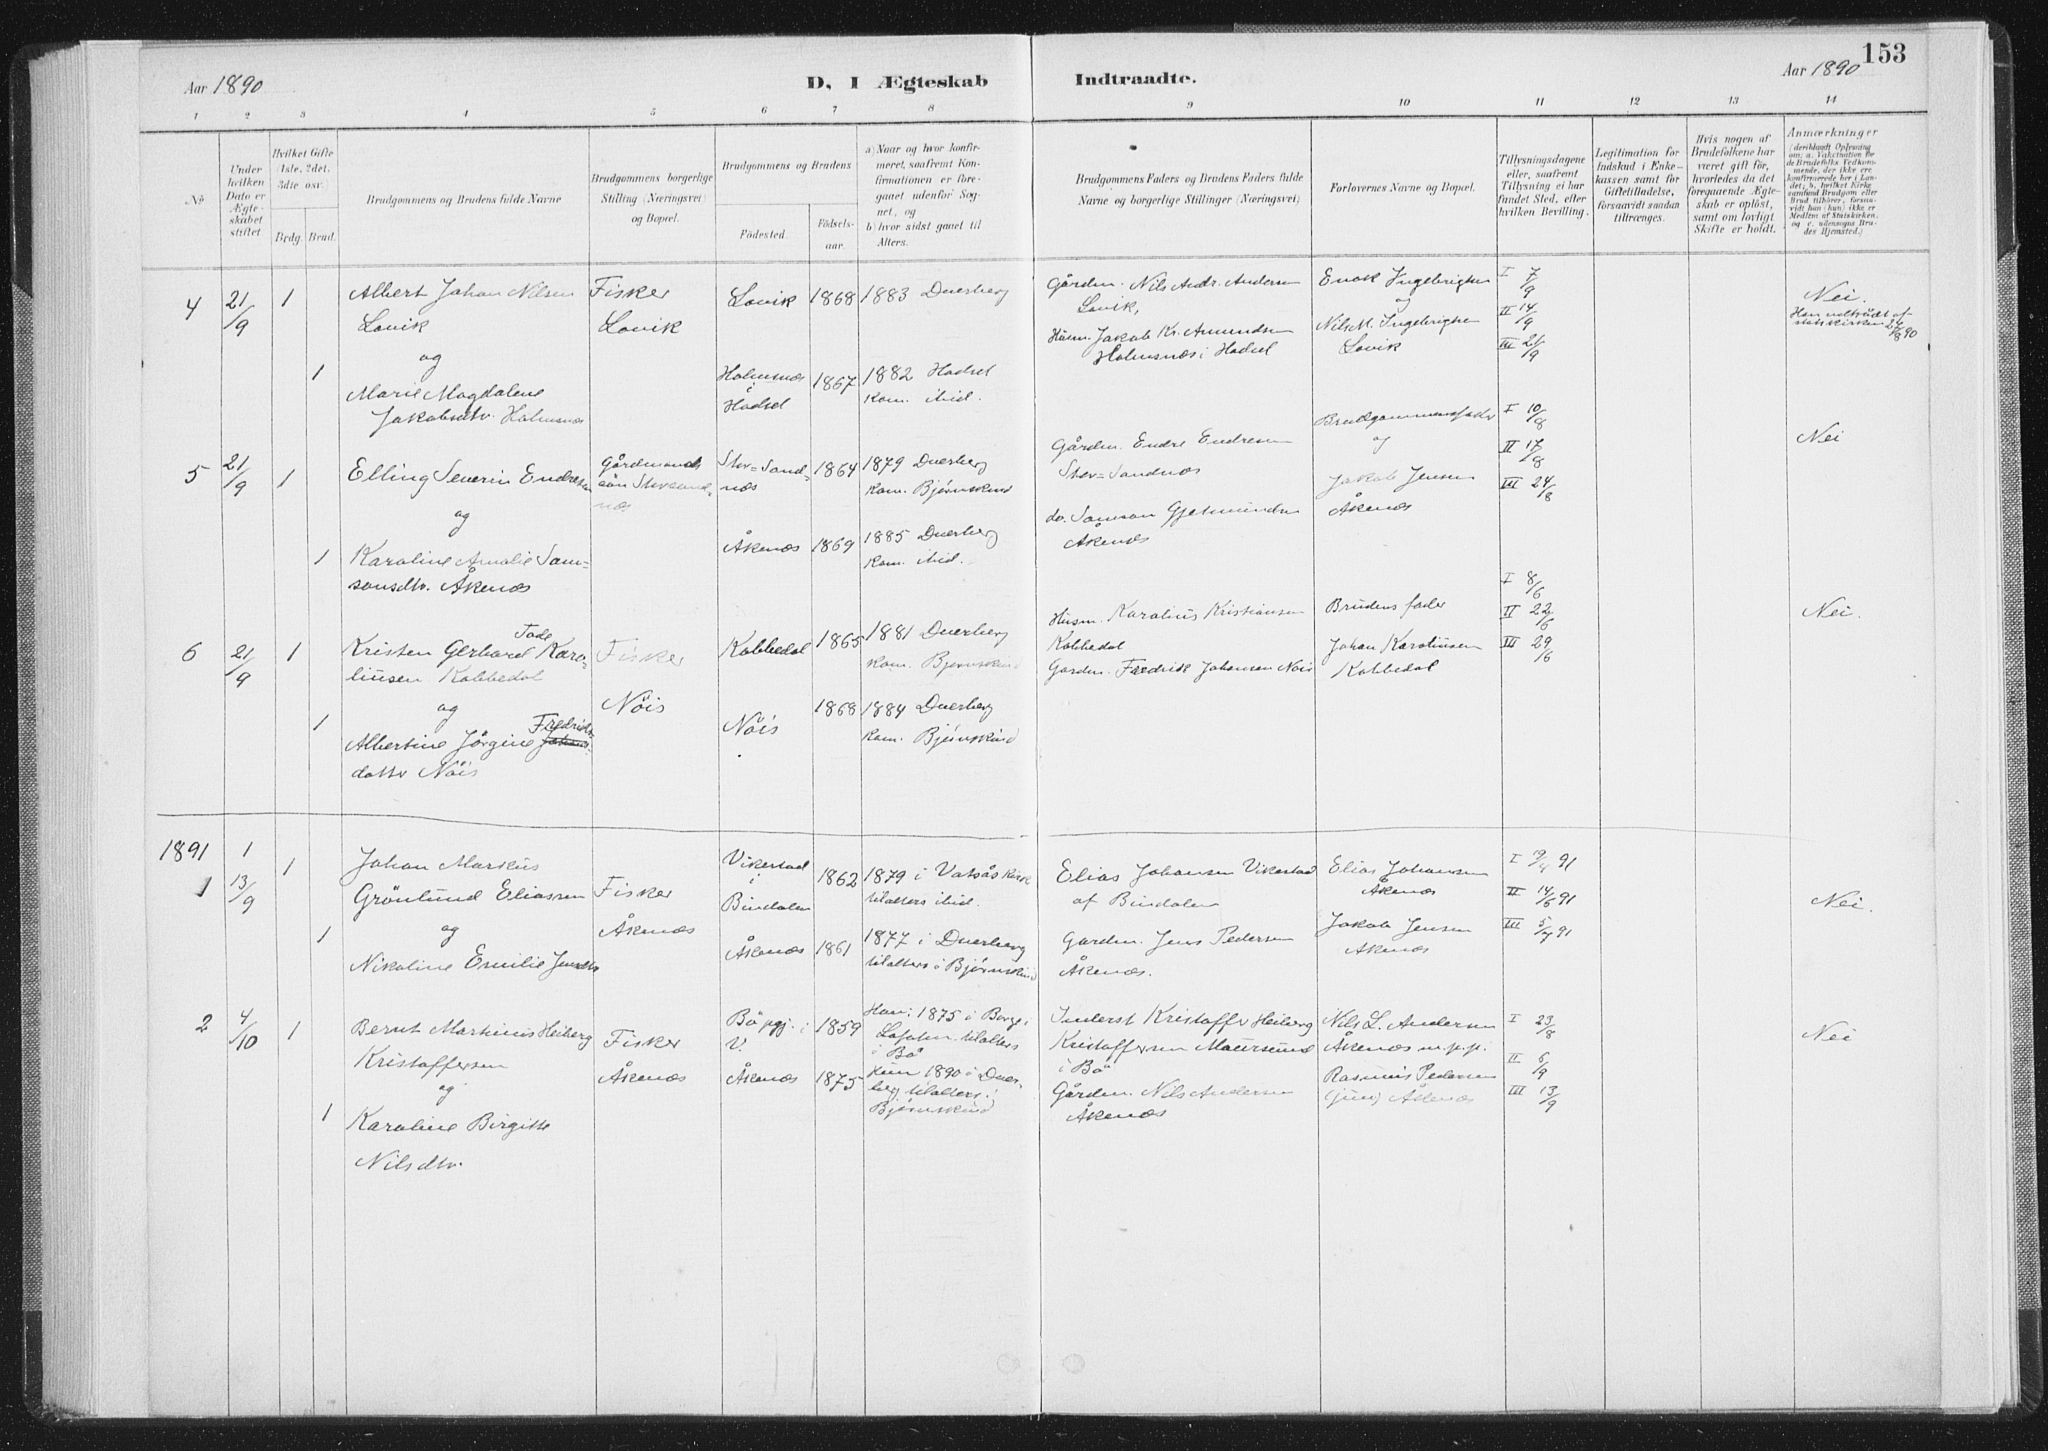 153
Aar 1890
D, I Ægteskab
Indtraadte.
Aar 1890
1 2 3 4 5 6 7 8 9 10 11 12 13 14
No
Under hvilken Dato er Ægteskabet stiftet.
Hvilket Gifte (1ste, 2det, 3die osv.)
Brdg. Brud.
Brudgommens og Brudens fulde Navne
Brudgommens borgerlige Stilling (Næringsvei) og Bopæl.
Brudgommens og Brudens
Födested. Födselsaar.
a) Naar og hvor konfirmeret, saafremt Konfirmationen er foregaaet udenfor Sognet, og
b) hvor sidst gaaet til Alters.
Brudgommens Faders og Brudens Faders fulde Navne og borgerlige Stillinger (Næringsvei)
Forlovernes Navne og Bopæl.
Tillysningsdagene eller, saafremt Tillysning ei har fundet Sted, efter hvilken Bevilling.
Legitimation for Indskud i Enkekassen samt for Giftetilladelse, forsaavidt saadan tiltrænges.
Hvis nogen af Brudefolkene har været gift før, hvorledes da det foregaaende Ægteskab er opløst, samt om lovligt Skifte er holdt.
Anmærkninger
(deriblandt Oplysning om: a. Vakcination for de Brudefolks Vedkommende, der ikke ere konfirmerede her i Landet; b. hvilket Kirkesamfund Brudgom eller Brud tilhører, forsaavidt han (hun) ikke er Medlem af Statskirken, og c. udensogns Brudes Hjemsted.)
4 21/9 1 Albert Johan Nilsen Fisker Lovik 1868 1883 Dverberg
Lovik Lovik
og
1 Marie Magdalene Holmsnæs i Hadsel 1867 1882 Hadsel
Jakobsdtr. Holmsnæs Kom. ibid.
Gårdm. Nils Andr. Andersen
Lovik,
Husm. Jakob Kr. Amundsen
Holmsnæs i Hadsel
Enok Ingebrigtsen
og
Nils M. Ingebrigtsen
Lovik
I 7/9
II 14/9
III 21/9
Nei.
Han udtrådt af
statskirken 24/8 90
5 21/9 1 Elling Severin Endresen Gårdmands
søn Stvesandnæs
Stv=Sandnæs 1864 1879 Dverberg
Kom. Bjørnskind
og
1 Karoline Amalie Sam=
sonsdtr. Åkenæs
Åkenæs 1869 1885 Dverberg
Kom. ibid.
Gårdm. Endre Endresen
Stv=Sandnæs
do. Samson Gjetmundsen
Åkenæs
Brudgommens fader
og
Jakob Jensen
Åkenæs
I 10/8
II 17/8
III 24/8
Nei
6 21/9 1 Kristen Gerhard Tode Karo=
liusen Kobbedal
Fisker
Nöis
Kobbedal 1865 1881 Dverberg
Kom. Bjørnskind
og
1 Albertine Jørgine Fredriks
datter Nöis
Nöis 1868 1884 Dverberg
Kom. Bjørnskind
Husm. Karolius Kristiansen
Kobbedal
Gårdm. Fredrik Johansen Nöis
Brudens fader
Johan Karoliusen
Kobbedal
I 8/6
II 22/6
III 29/6
Nei.
1891
1 13/9 1 Johan Markus
Grönlund Eliassen
Fisker
Åkenæs
Vikestad i Bindalen 1862 1879 i Vatsås Kirke
tilalters ibid.
og
1 Nikoline Emilie Jensdtr
Åkenæs 1861 1877 i Dverberg
tilalters i Bjørnskind
Elias Johansen Vikestad
af Bindalen
Gårdm. Jens Pedersen
Åkenæs.
Elias Johansen
Åkenæs
Jakob Jensen
Åkenæs
I 19/4 91
II 14/6 91
III 5/7 91
Nei.
2 4/10 1 Bernt Martinus Heiberg
Kristoffersen
Fisker
Åkenæs
Bö pgj. i V. 1859 Han: 1875 i Borge i
Lofoten. tilalters
i Bö
og
1 Karoline Birgitte
Nilsdtr.
Åkenæs 1875 Hun 1890 i Dver=
berg tilalters i
Bjørnskind
Inderst Kristoffer Heiberg
Kristoffersen Maursund
i Bö
Gårdm. Nils Andersen
Åkenæs
Nils L. Andersen
Åkenæs m.p.p.
Rasmus Pedersen
(jun) Åkenæs
I 23/8
II 6/9
III 13/9
Nei